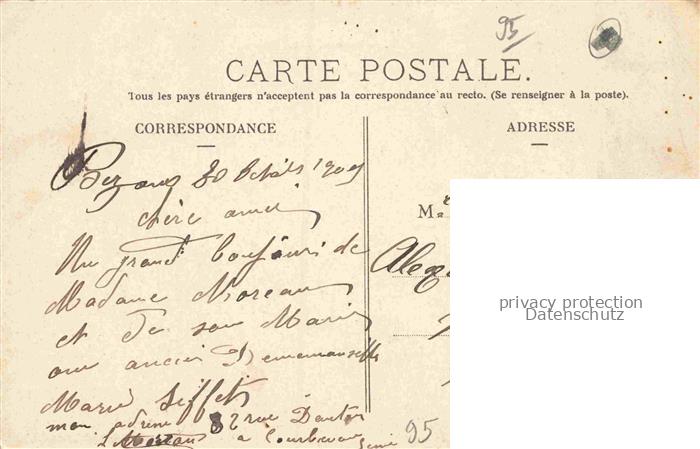 95
CARTE POSTALE.
Tous les pays étrangers n'acceptent pas la correspondance au recto. (Se renseigner à la poste).
CORRESPONDANCE
ADRESSE
Bezons 30
chère amie
M
Un grand bonjour de
Madame Moreau
et de son Mari
Marie
mon adresse 82 rue Danton
a Courbevoie
95
privacy protection
Datenschutz